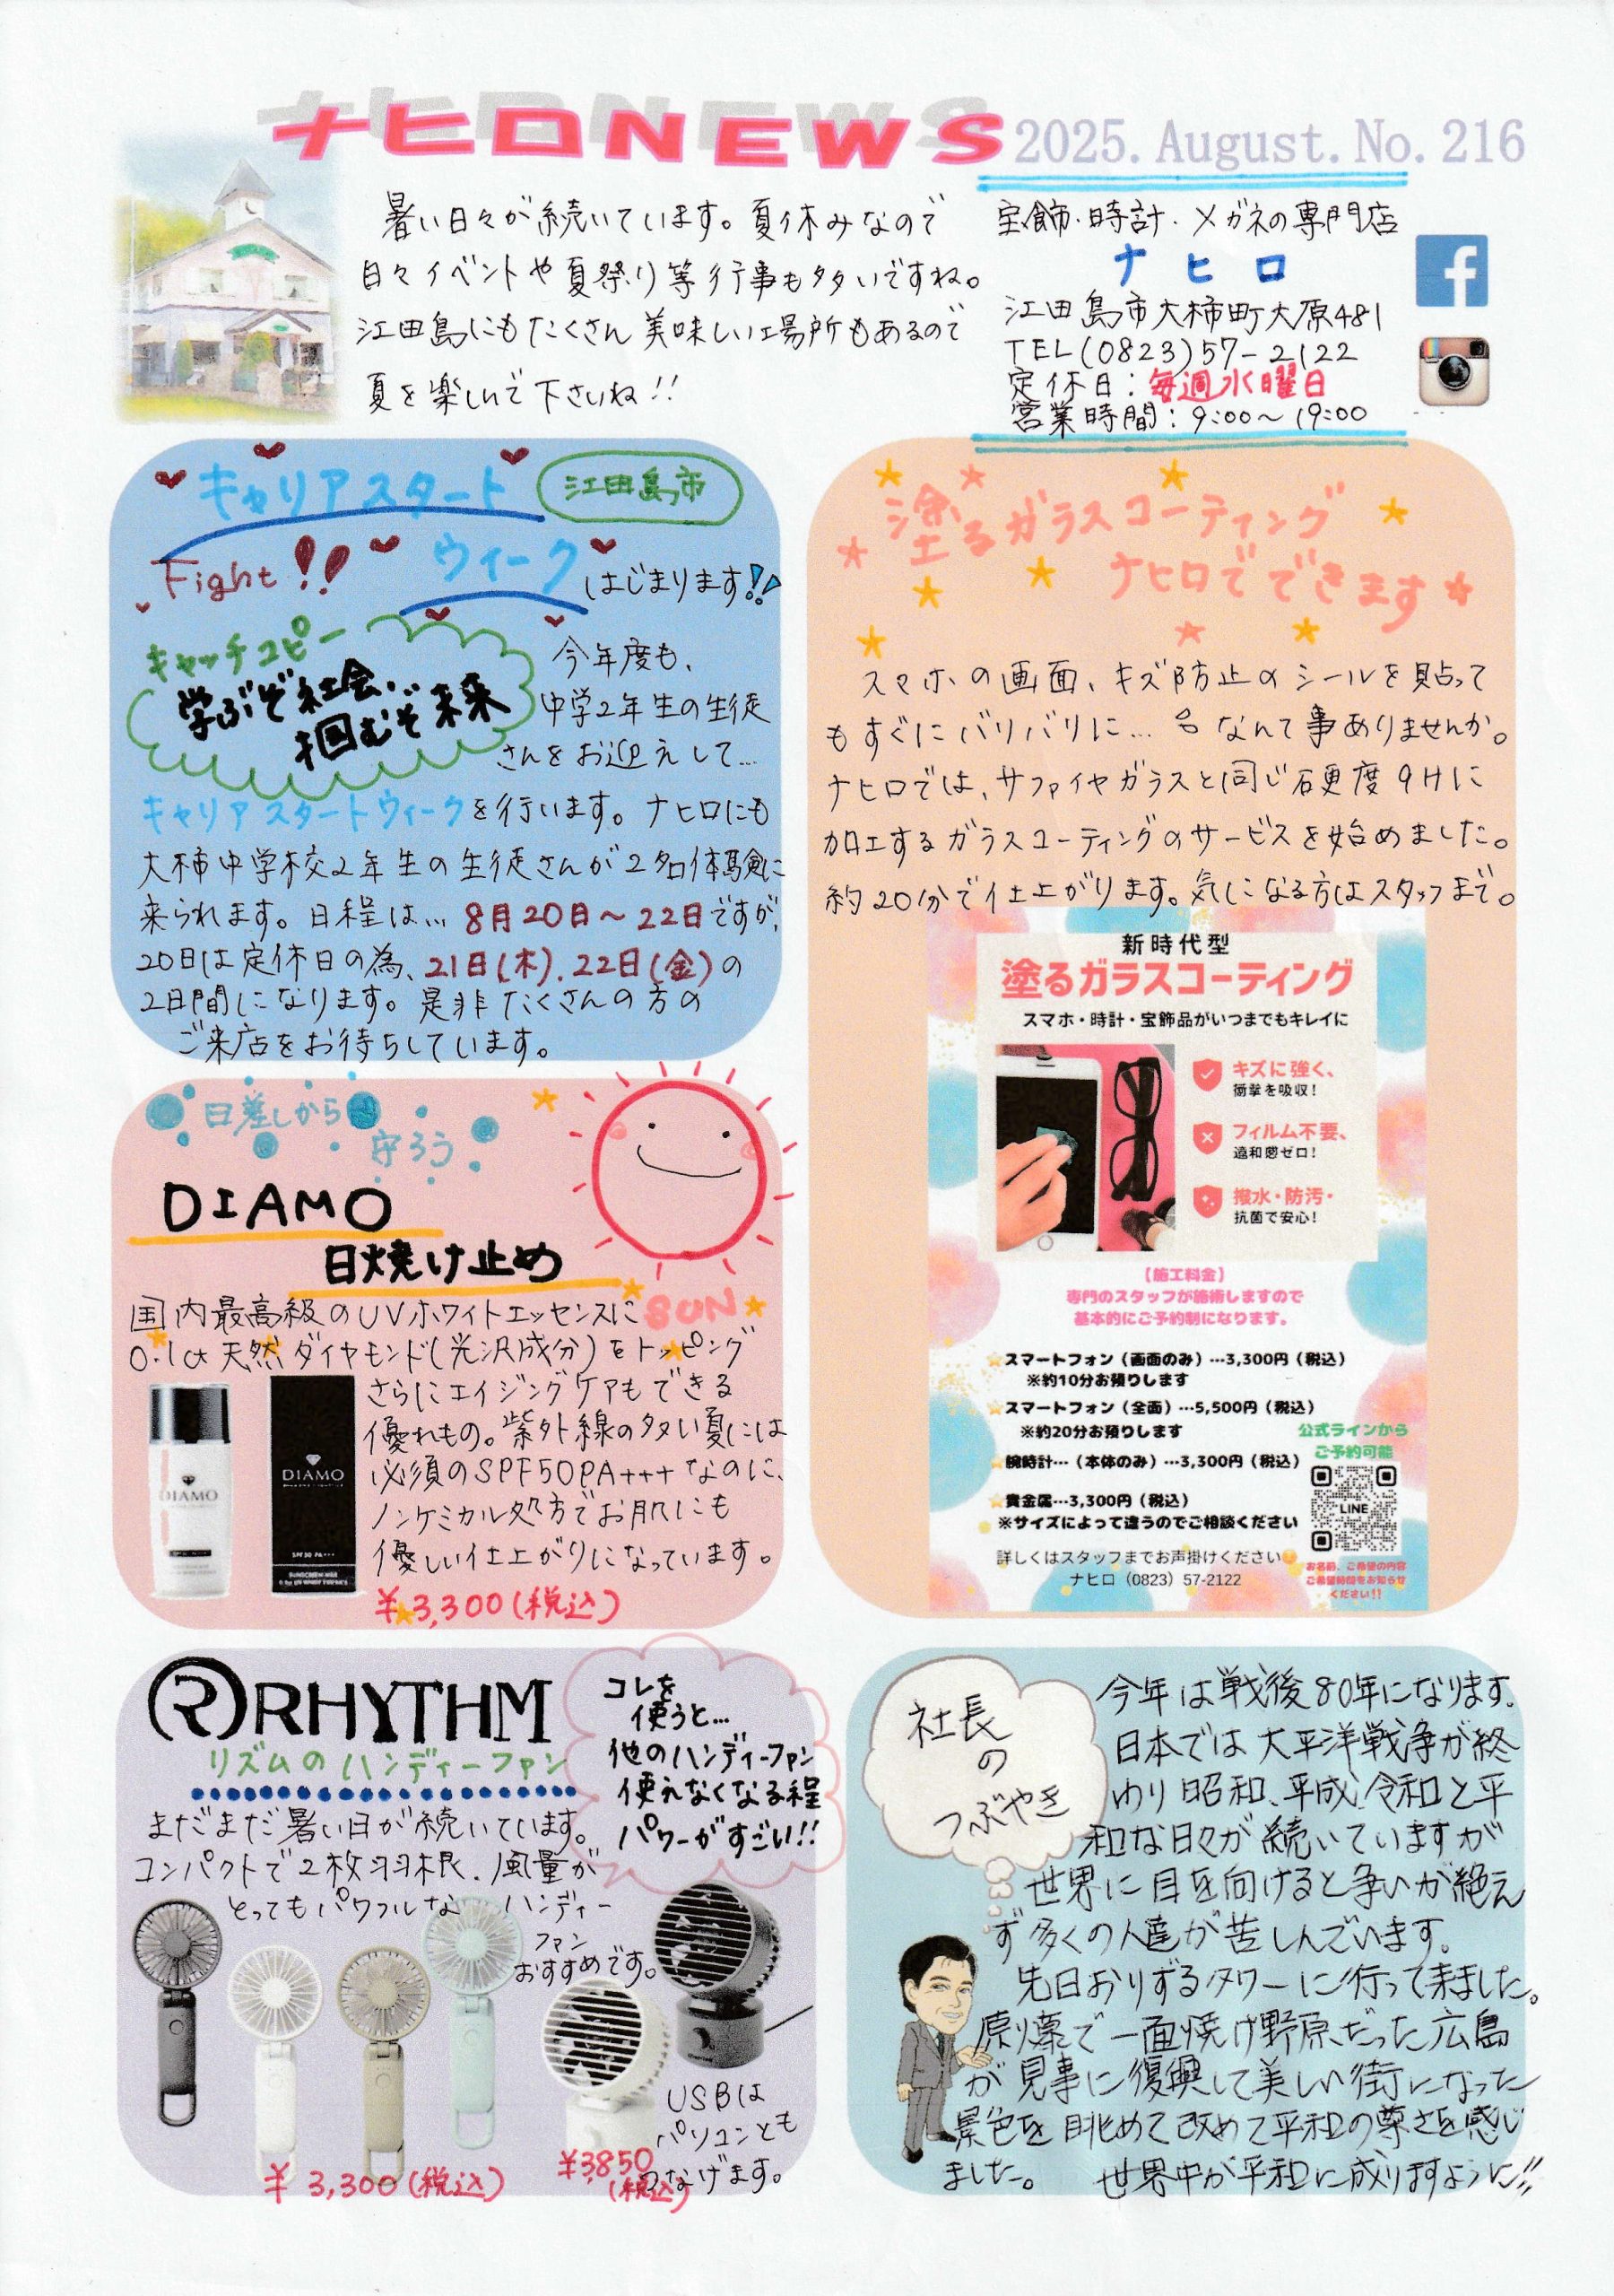 ナヒロNEWS 2025. August. No. 216
暑い日々が続いています。夏休みなので
日々イベントや夏祭り等行事も多いですね。
江田島にもたくさん美味しい場所もあるので
夏を楽しんで下さいね!!
宝飾・時計・メガネの専門店
ナヒロ
江田島市大柿町大原481
TEL(0823)57-2122
定休日：毎週水曜日
営業時間：9:00～19:00
キャリアスタート 江田島市
Fight!! ウィーク はじまります!!
キャッチコピー
学ぶぞ社会、
掴むぞ未来
今年度も、
中学2年生の生徒
さんをお迎えして…
キャリアスタートウィークを行います。ナヒロにも
大柿中学校2年生の生徒さんが2名体験に
来られます。日程は… 8月20日～22日ですが、
20日は定休日の為、21日(木).22日(金)の
2日間になります。是非たくさんの方の
ご来店をお待ちしています。
塗るガラスコーティング
ナヒロでできます
スマホの画面、キズ防止のシールを貼って
もすぐにバリバリに… なんて事ありませんか。
ナヒロでは、サファイヤガラスと同じ硬度9Hに
加工するガラスコーティングのサービスを始めました。
約20分で仕上がります。気になる方はスタッフまで。
新時代型
塗るガラスコーティング
スマホ・時計・宝飾品がいつまでもキレイに
キズに強く、
衝撃を吸収！
フィルム不要、
違和感ゼロ！
撥水・防汚・
抗菌で安心！
【施工料金】
専門のスタッフが施術しますので
基本的にご予約制になります。
スマートフォン（画面のみ）…3,300円（税込）
※約10分お預りします
スマートフォン（全面）…5,500円（税込）
※約20分お預りします
腕時計…（本体のみ）…3,300円（税込）
貴金属…3,300円（税込）
※サイズによって違うのでご相談ください
公式ラインから
ご予約可能
LINE
お名前、ご希望の内容
ご希望時間をお知らせ
ください!!
詳しくはスタッフまでお声掛けください
ナヒロ（0823）57-2122
日差しから
守ろう
DIAMO
日焼け止め
SUN
国内最高級のUVホワイトエッセンスに
0.1ct天然ダイヤモンド(光沢成分)をトッピング
さらにエイジングケアもできる
優れもの。紫外線の多い夏には
必須のSPF50PA+++なのに、
ノンケミカル処方でお肌にも
優しい仕上がりになっています。
¥3,300(税込)
DIAMO
DIAMO
SPF50 PA+++
RRHYTHM
リズムのハンディーファン
コレを
使うと…
他のハンディーファン
使えなくなる程
パワーがすごい!!
まだまだ暑い日が続いています。
コンパクトで2枚羽根、風量が
とってもパワフルなハンディー
ファン
おすすめです。
USBは
パソコンとも
つなげます。
¥3,300(税込)
¥3850
(税込)
社長
の
つぶやき
今年は戦後80年になります。
日本では太平洋戦争が終
わり昭和、平成、令和と平
和な日々が続いていますが
世界に目を向けると争いが絶え
ず多くの人達が苦しんでいます。
先日おりずるタワーに行って来ました。
原爆で一面焼け野原だった広島
が見事に復興して美しい街になった
景色を眺めて改めて平和の尊さを感じ
ました。 世界中が平和に成りますように!!